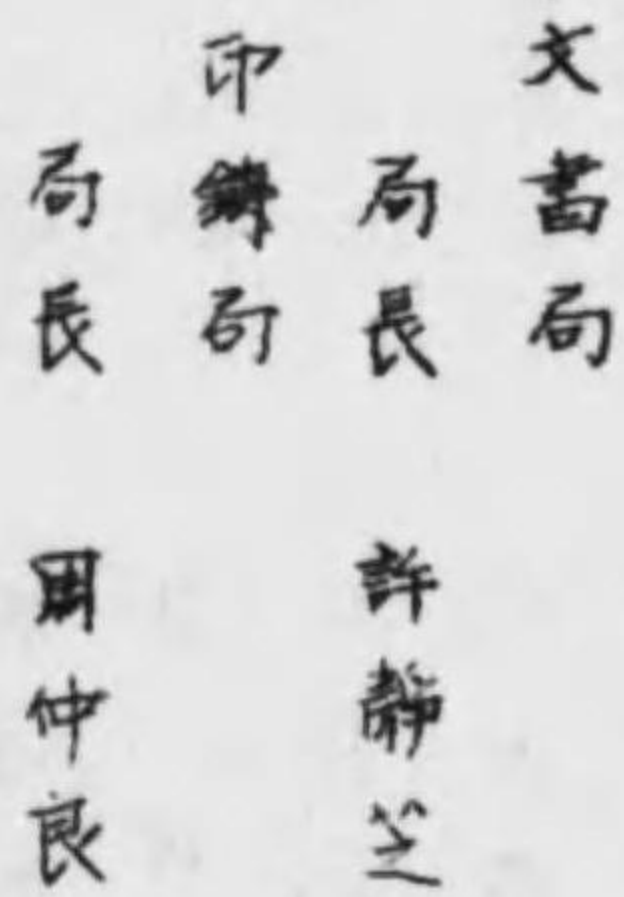 文書局
局長　許靜芝
印鑄局
局長　周仲良